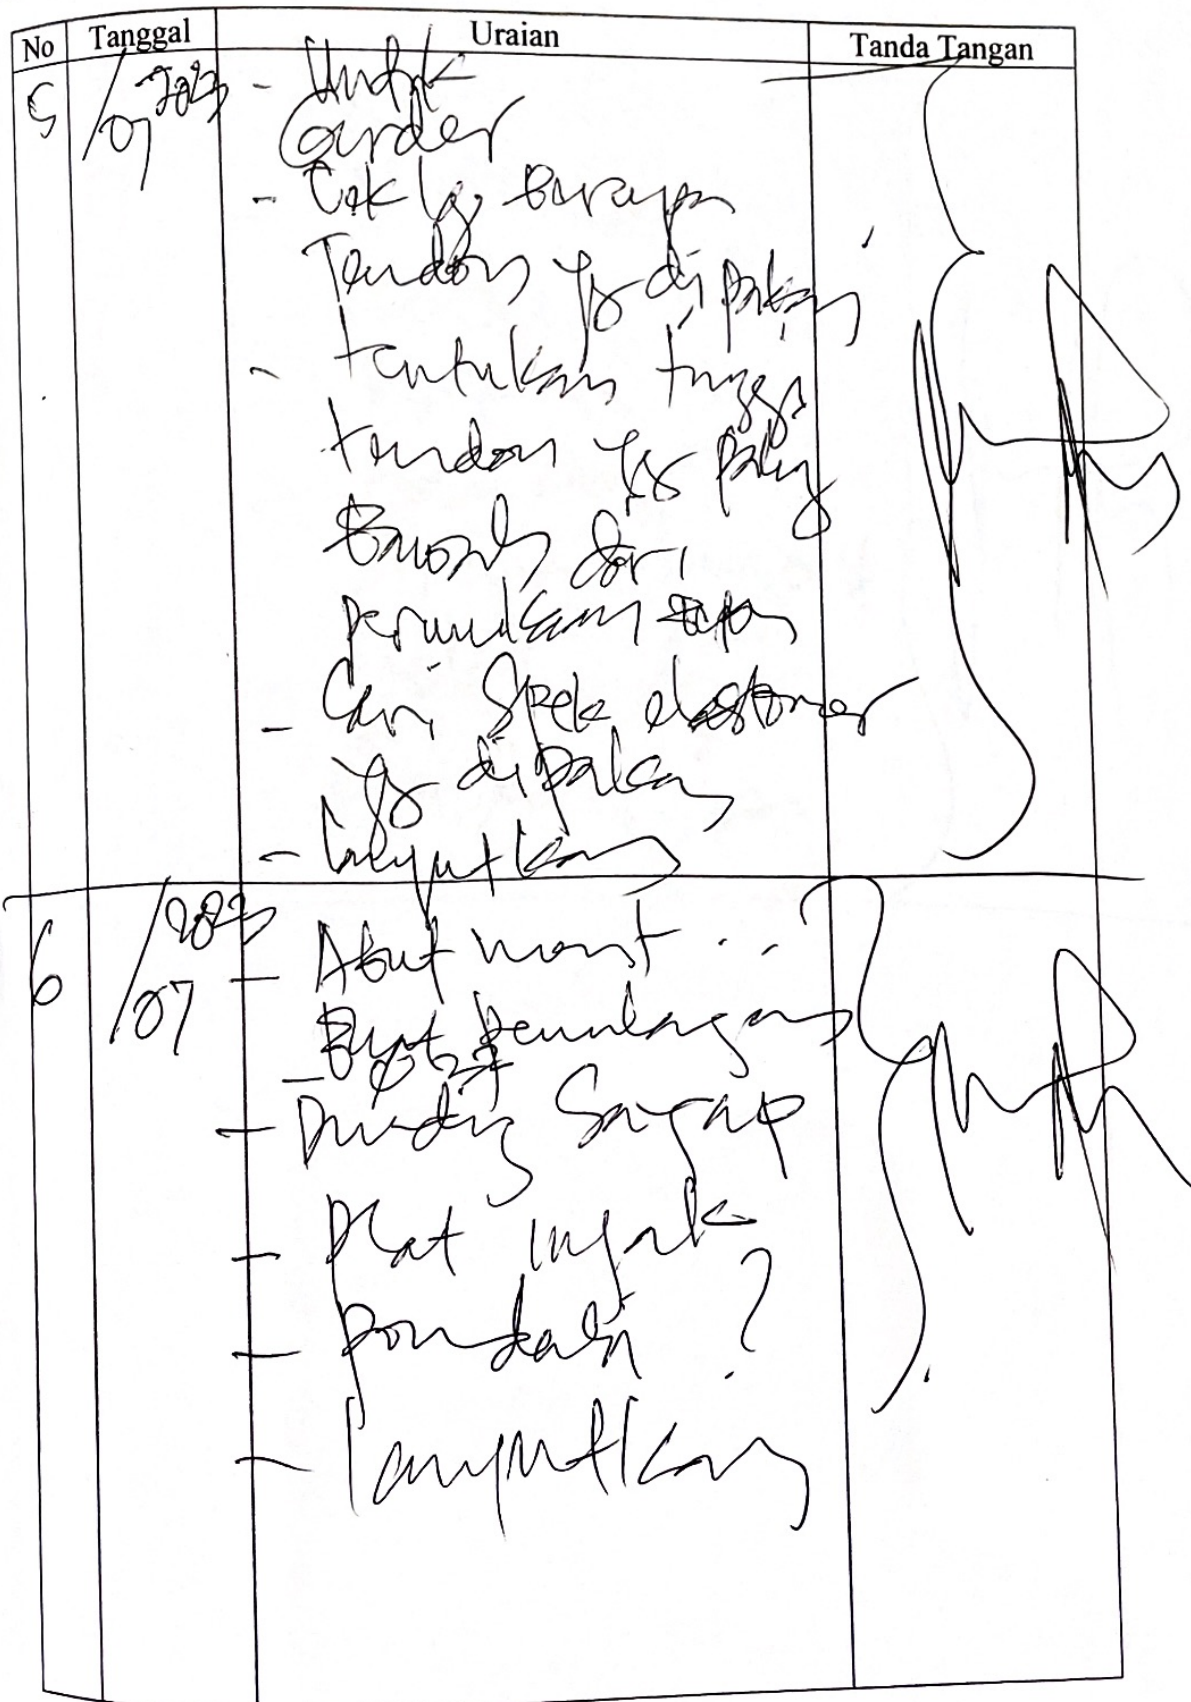 No Tanggal Uraian Tanda Tangan
5 /07 2023 - Untuk
Girder
- Cek lg berapa
Tendon yg dipakai
- tentukan tinggi
tendon yg paling
bawah dari
permukaan
- Cari Spek elastomer
yg dipakai
- lanjutkan
6 /07 2023 - Abutment ..
- Buat penulangan
- Dinding Sayap
- plat injak
- pondasi ?
- lanjutkan